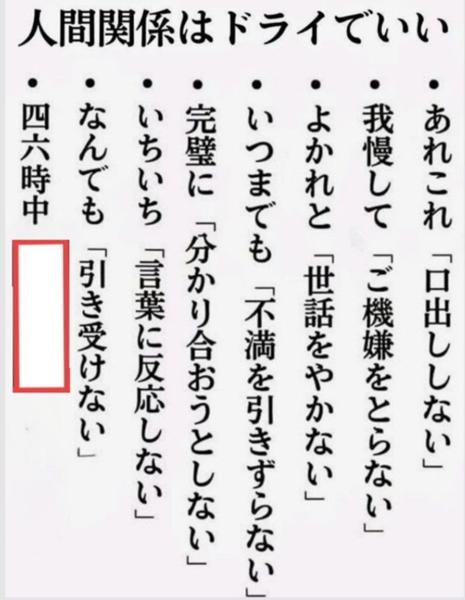 人間関係はドライでいい
• あれこれ「口出ししない」
• 我慢して「ご機嫌をとらない」
• よかれと「世話をやかない」
• いつまでも「不満を引きずらない」
• 完璧に「分かり合おうとしない」
• いちいち「言葉に反応しない」
• なんでも「引き受けない」
• 四六時中